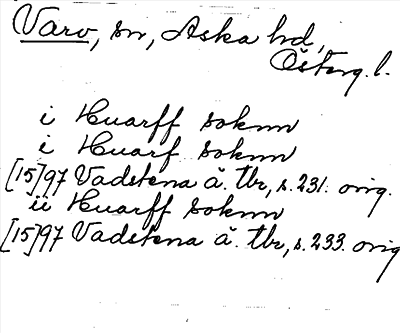 Varv, sn, Aska hd,
Österg. l.
i Huarff soknn
i Huarf soknn
[15]97 Vadstena ä. tbr, s. 231. orig.
ii Huarff soknn
[15]97 Vadstena ä. tbr, s. 233. orig